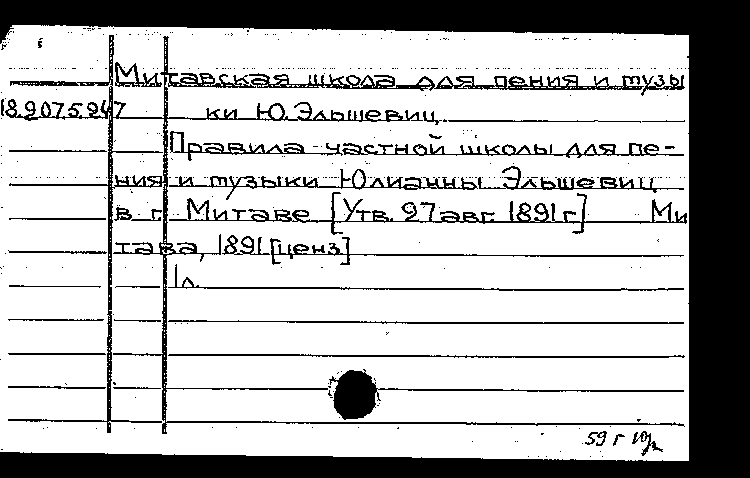 Митавская школа для пения и музы
18.9075.947 ки Ю. Эльшевиц.
Правила частной школы для пе-
ния и музыки Юлианны Эльшевиц
в г. Митаве [Утв. 27 авг. 1891 г.] Ми
тава, 1891 [ценз]
1 л.
59 г